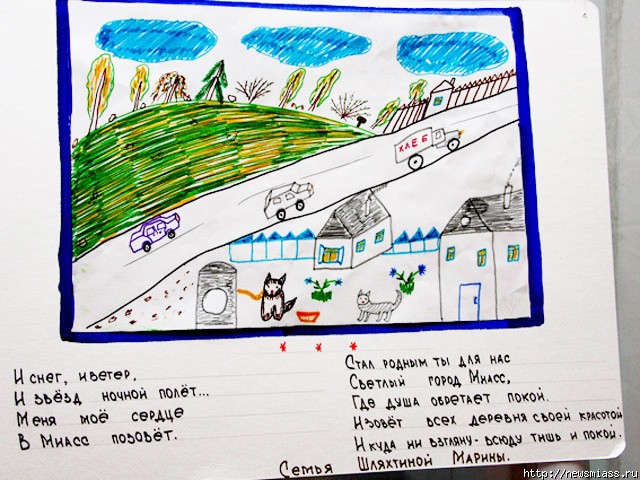 ХЛЕБ
* * *
И снег, и ветер,
И звёзд ночной полёт...
Меня моё сердце
В Миасс позовёт.
Стал родным ты для нас
Светлый город Миасс,
Где душа обретает покой.
И зовёт всех деревня своей красотой
И куда ни взгляну- всюду тишь и покой.
Семья Шляхтиной Марины.
http://newsmiass.ru